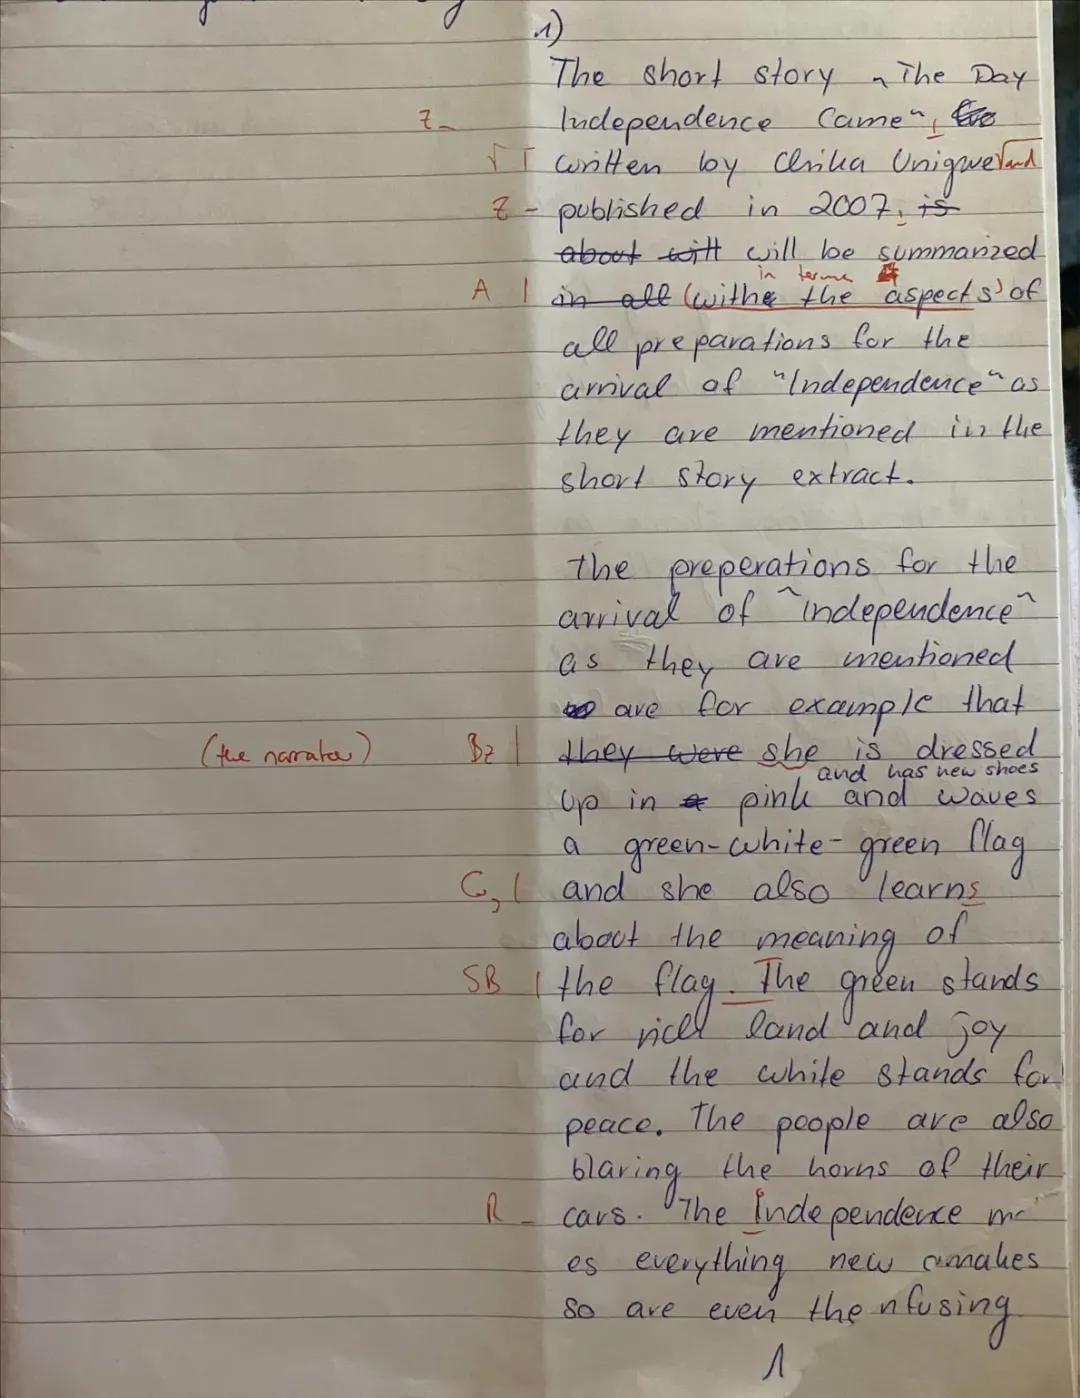 1)
The short story „The Day
Z Independence Came“,
√ T written by Chika Unigwe √and
Z published in 2007, is
about will will be summarized
in terms
A in all (with the aspects) of
all preparations for the
arrival of "Independence" as
they are mentioned in the
short story extract.
The preperations for the
arrival of "independence"
as they are mentioned
are for example that
(the narrator) Bz they were she is dressed
and has new shoes
up in a pink and waves
a green-white-green flag
G, and she also learns
about the meaning of
SB the flag. The green stands
for rich land and joy
and the white stands for
peace. The people are also
blaring the horns of their
R cars. The Independence
es everything new
so are even the
1